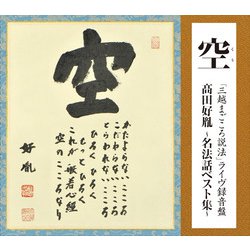 空
「三越まごころ説法」ライヴ録音盤
高田好胤
～名法話ベスト集～
空
かたよらないこころ
こだわらないこころ
とらわれないこころ
ひろく ひろく
もっと ひろく
これが 般若心経
空のこころなり
好胤